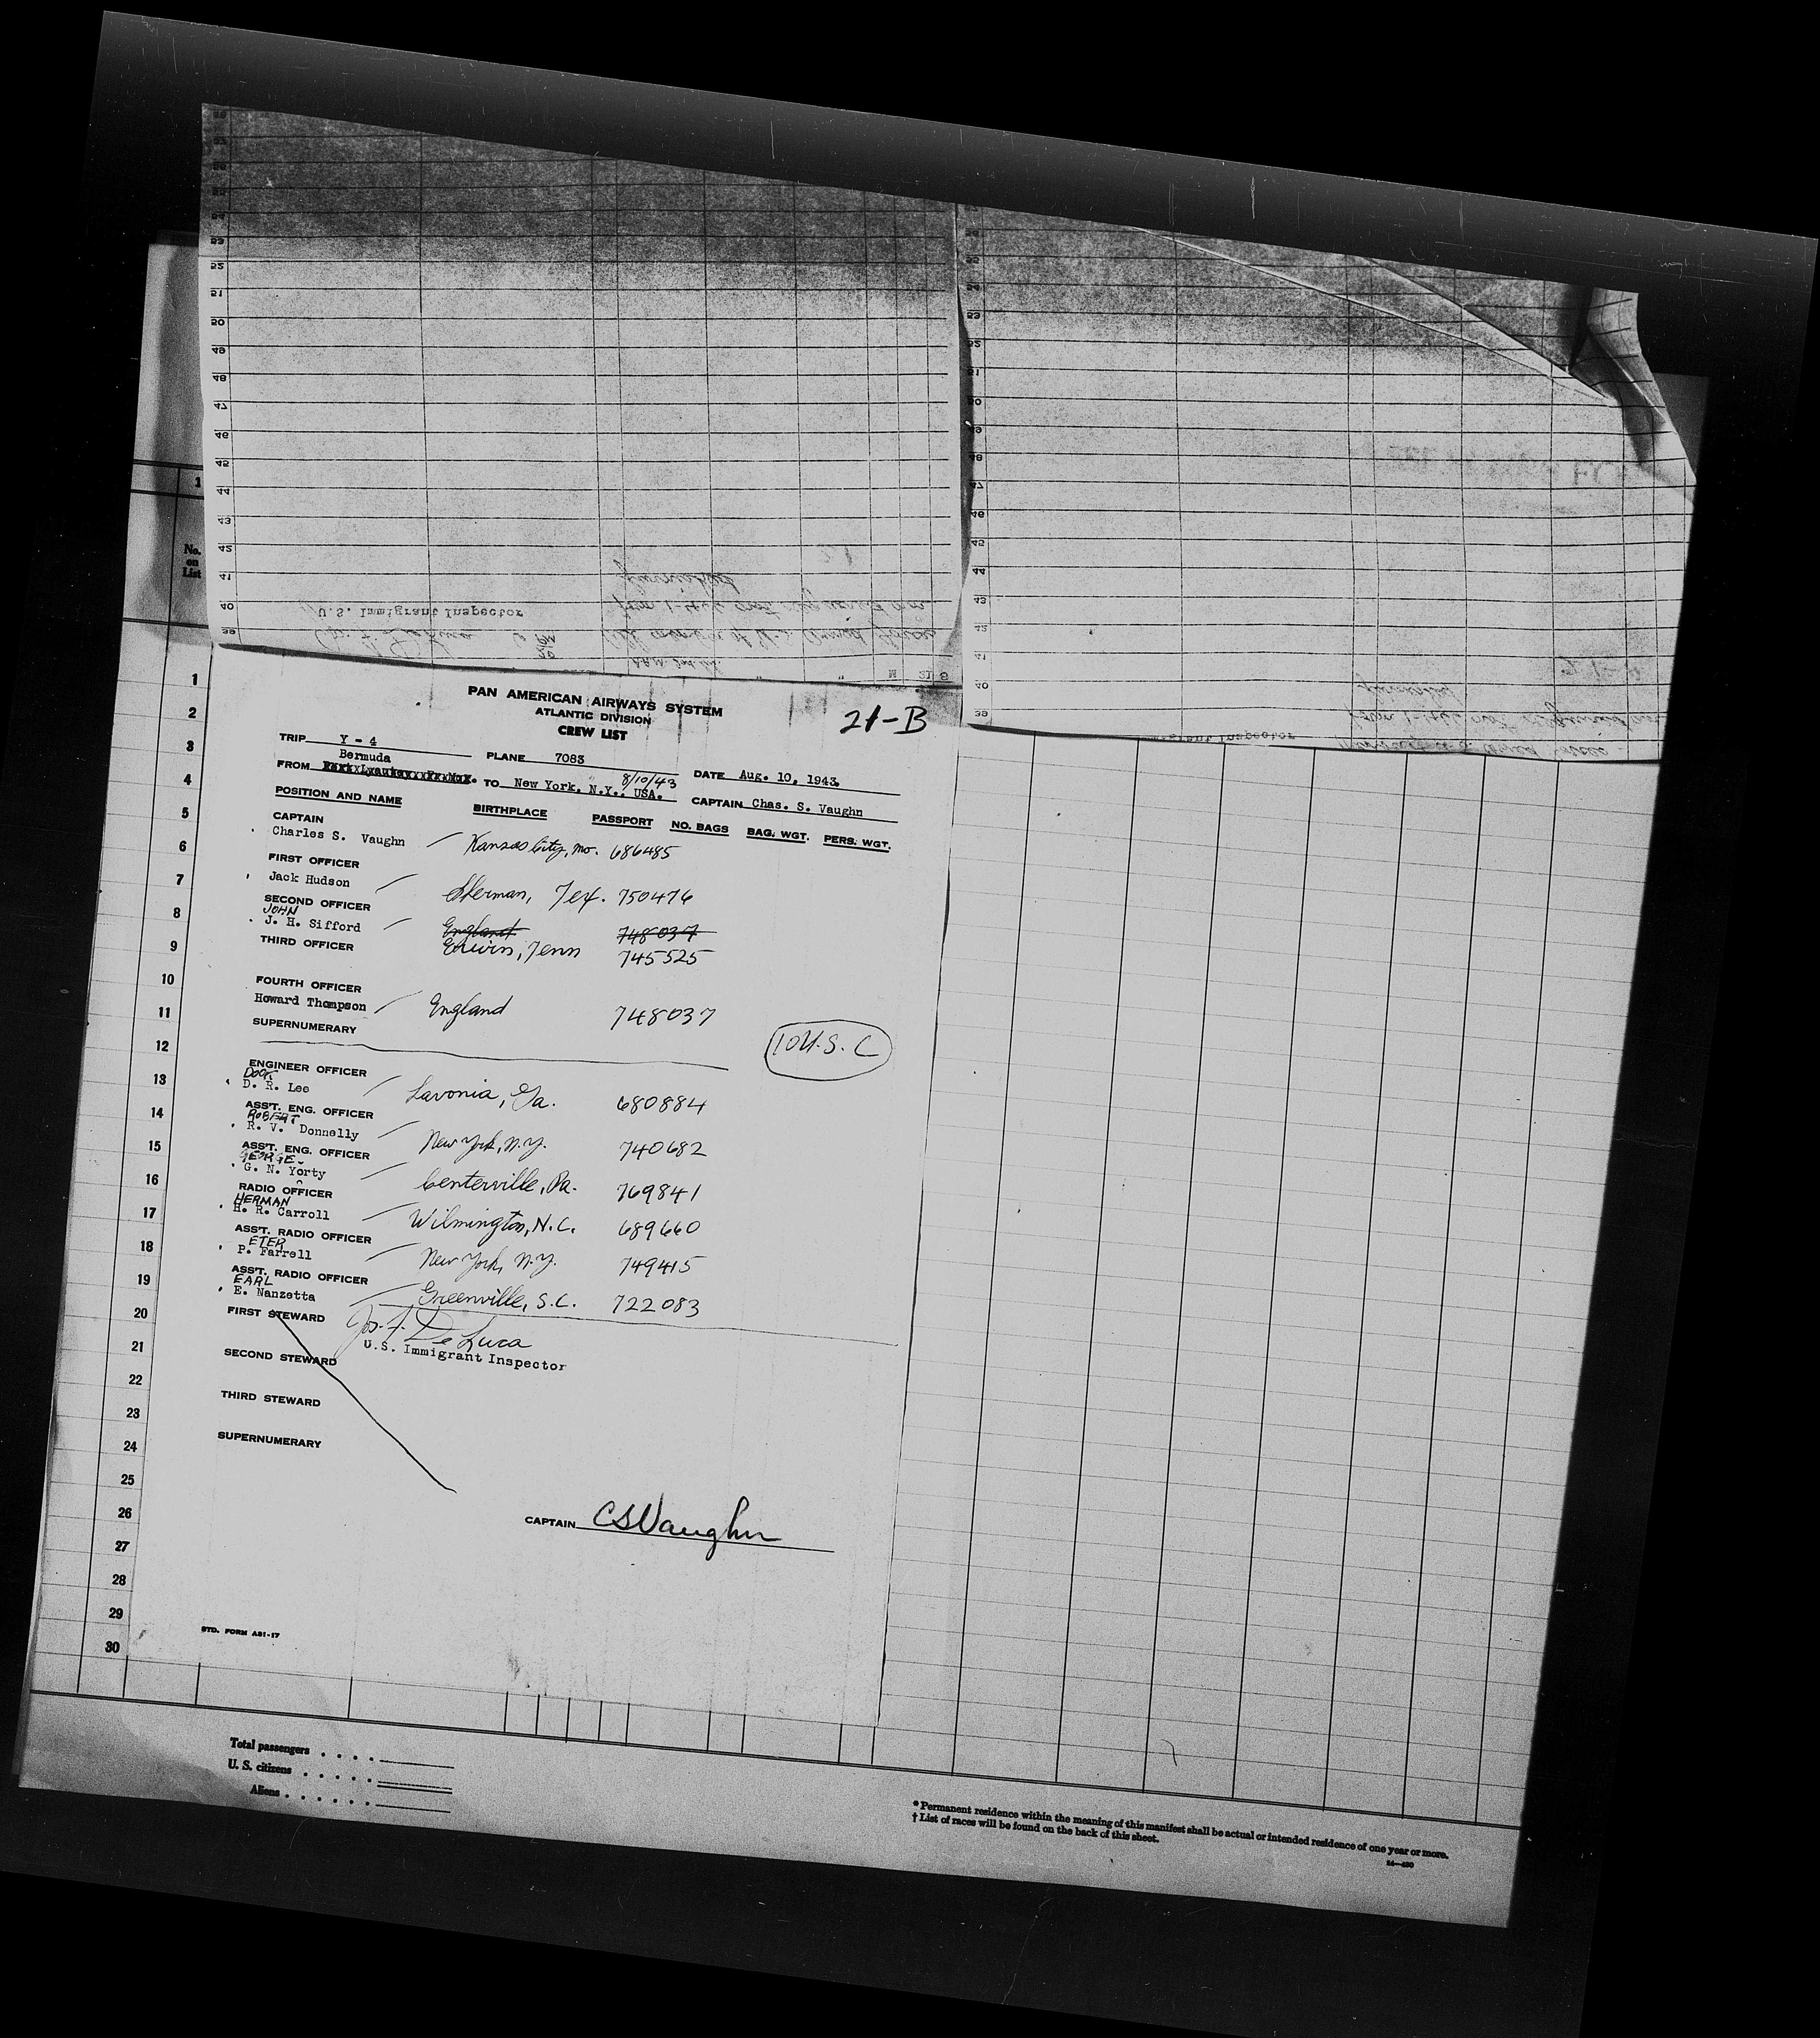 PAN AMERICAN AIRWAYS SYSTEM
ATLANTIC DIVISION
CREW LIST
21-B
TRIP Y - 4 PLANE 7083 DATE Aug. 10, 1943.
Bermuda 8/10/43
FROM TO New York, N.Y., USA. CAPTAIN Chas. S. Vaughn
POSITION AND NAME BIRTHPLACE PASSPORT NO. BAGS BAG. WGT. PERS. WGT.
CAPTAIN
Charles S. Vaughn Kansas City, Mo. 686485
FIRST OFFICER
Jack Hudson Sherman, Tex. 750476
SECOND OFFICER
JOHN
J. H. Sifford England 748037
THIRD OFFICER Erwin, Tenn 745525
FOURTH OFFICER
Howard Thompson England 748037
SUPERNUMERARY
10 U.S.C
ENGINEER OFFICER
DOCK
D. R. Lee Lavonia, Ga. 680884
ASS'T. ENG. OFFICER
ROBERT
R. V. Donnelly New York, N.Y. 740682
ASS'T. ENG. OFFICER
GEORGE
G. N. Yorty Centerville, Pa. 769841
RADIO OFFICER
HERMAN
H. R. Carroll Wilmington, N.C. 689660
ASS'T. RADIO OFFICER
ETER
P. Farrell New York, N.Y. 749415
ASS'T. RADIO OFFICER
EARL
E. Nanzetta Greenville, S.C. 722083
FIRST STEWARD
Jos. F. De Luca
U.S. Immigrant Inspector
SECOND STEWARD
THIRD STEWARD
SUPERNUMERARY
CAPTAIN CSVaughn
STD. FORM A81-17
No.
on
List
1
2
3
4
5
6
7
8
9
10
11
12
13
14
15
16
17
18
19
20
21
22
23
24
25
26
27
28
29
30
Total passengers
U. S. citizens
Aliens
* Permanent residence within the meaning of this manifest shall be actual or intended residence of one year or more.
† List of races will be found on the back of this sheet.